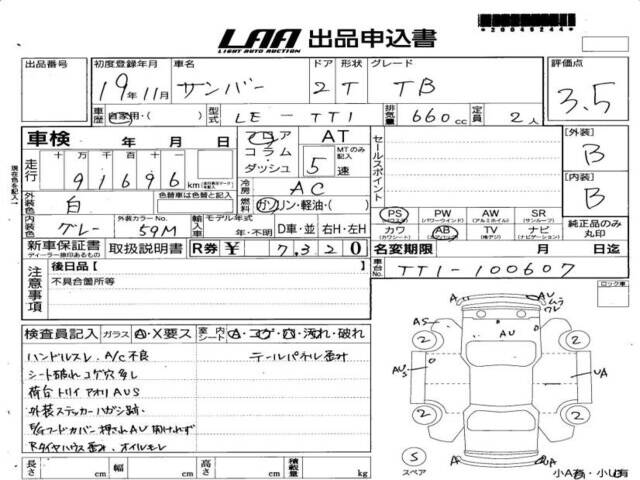 LAA 出品申込書
LIGHT AUTO AUCTION
*20046244*
出品番号 初度登録年月 車名 ドア 形状 グレード 評価点
19年11月 サンバー 2 T TB 3.5
車歴 自家用・( ) 型式 LE-TT1 排気量 660cc 定員 2人
車検 年 月 日 フロア コラム・ダッシュ AT MTのみ記入 5速
セールスポイント
[外装] B
走行 十万千百十 91696 km
冷房 AC
[内装] B
現在色を記入
外装色 白 色替車は色替と記入
燃料 ガソリン・軽油・( )
PS (パワステ) PW (パワーウインド) AW (アルミホイル) SR (サンルーフ)
純正品のみ丸印
内装色 グレー 外装カラーNo. 59M
輸入車 モデル年式 年・不明 D車・並 右H・左H
カワ (カワシート) AB (エアバッグ) TV (純正ナビ) ナビ (ナビゲーション)
新車保証書 ディーラー捺印あるもの 取扱説明書 R券 ¥ 7,320
名変期限 月 日迄
注意事項 後日品[ ]
不具合箇所等
車台No. TT1-100607
ロック車
検査員記入 ガラス A・X要ス 室内 シート A・コゲ・穴・汚れ・破れ
ハンドルスレ、A/C不良 テールパネル歪み
シート破れ コゲ穴多し
荷台トリイ アオリ AUS
外装ステッカーハガシ跡・
Rタイヤハウス歪み、オイルモレ
AU
A
AS
2
2
AU
UA
2
2
S
スペア
A
小A有・小U有
長さ cm 幅 cm 高さ cm 積載量 kg